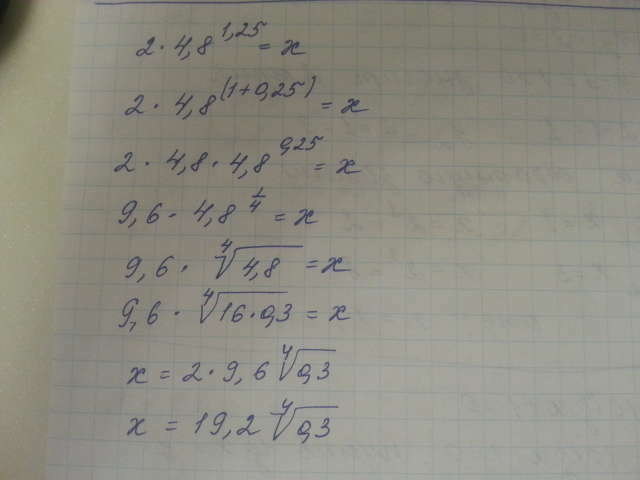 2 · 4,8^1,25 = x
2 · 4,8^(1+0,25) = x
2 · 4,8 · 4,8^0,25 = x
9,6 · 4,8^1/4 = x
9,6 · ⁴√4,8 = x
9,6 · ⁴√16·0,3 = x
x = 2·9,6 ⁴√0,3
x = 19,2 ⁴√0,3